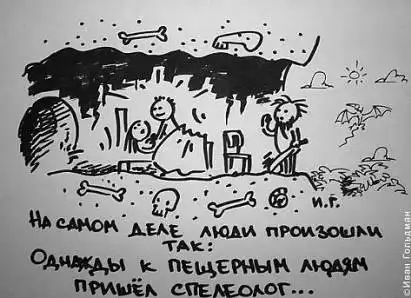 И.Г.
На самом деле люди произошли
так:
Однажды к пещерным людям
пришёл спелеолог...
©Иван Гольдман